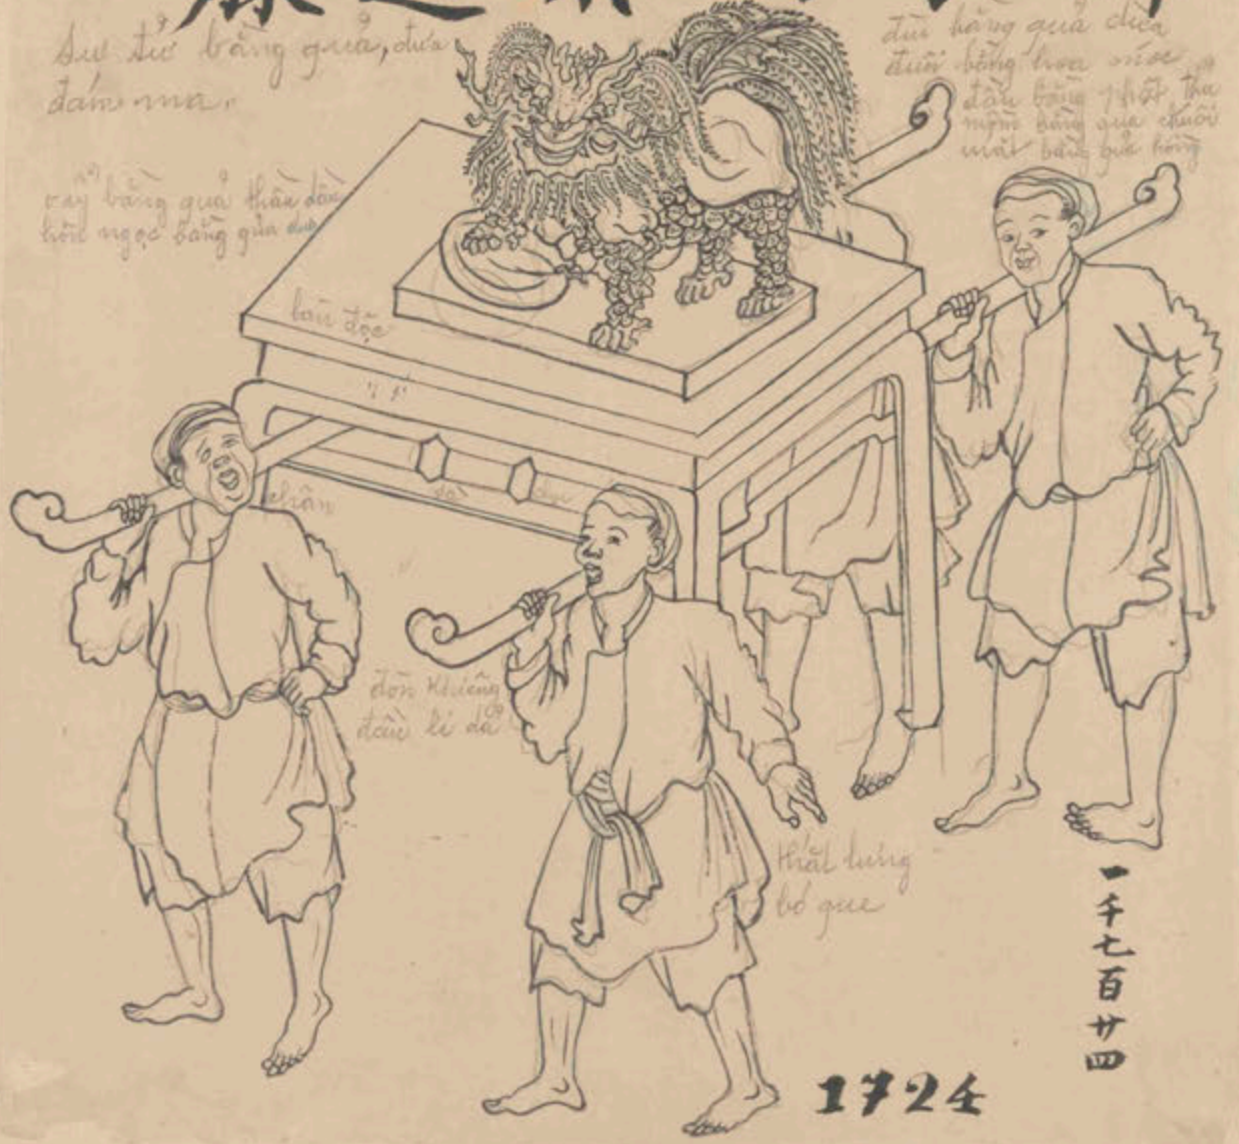 Sư tử bằng quả, đưa
đám ma.
đùi bằng quả dừa
đuôi bằng hoa móc
đầu bằng phật thủ
mồm bằng quả chuối
mắt bằng quả hồng
vảy bằng quả thầu dầu
hòn ngọc bằng quả dưa
bàn độc
chân
đòn khiêng
thắt lưng
bỏ que
一千七百廿四
1724